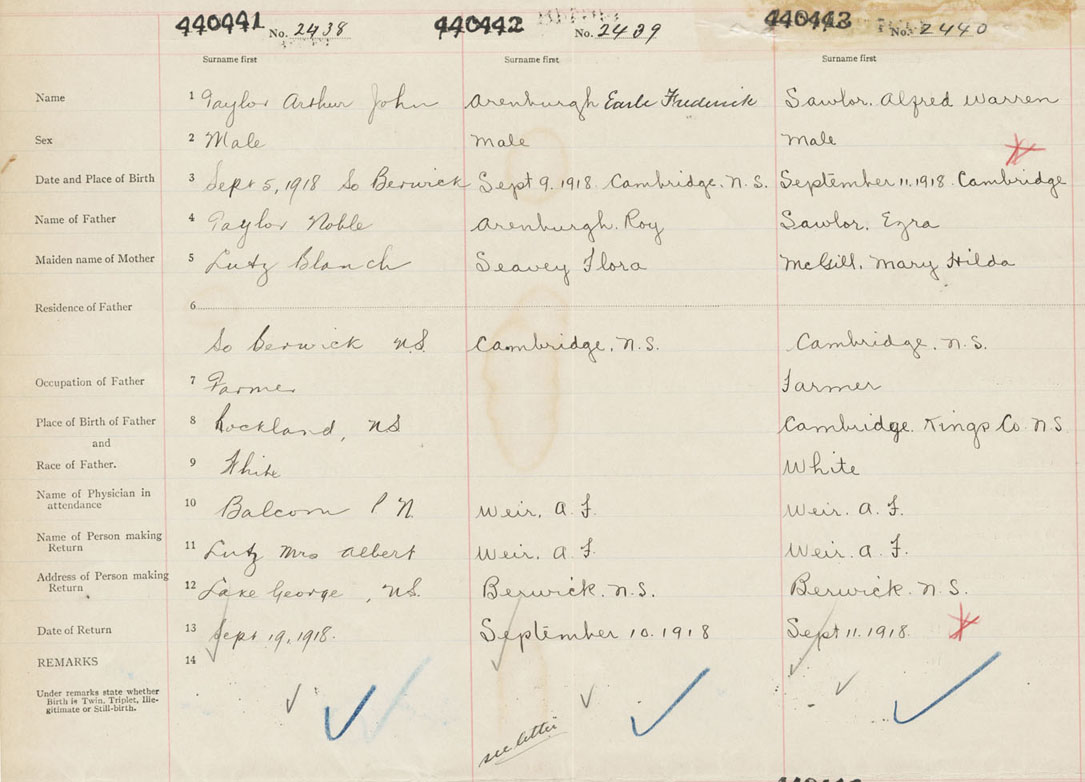 440441 No. 2438 440442 No. 2439 440443 No. 2440
Surname first Surname first Surname first
Name 1 Taylor Arthur John Arenburgh Earle Frederick Sawlor. Alfred Warren
Sex 2 Male Male Male
Date and Place of Birth 3 Sept 5, 1918 So Berwick Sept 9. 1918. Cambridge. N. S. September 11. 1918. Cambridge
Name of Father 4 Taylor Noble Arenburgh. Roy Sawlor. Ezra
Maiden name of Mother 5 Lutz Blanch Seavey Flora McGill. Mary Hilda
Residence of Father 6
So Berwick N.S. Cambridge. N. S. Cambridge. N. S.
Occupation of Father 7 Farmer Farmer
Place of Birth of Father 8 Rockland, NS Cambridge. Kings Co. N. S.
and
Race of Father. 9 White White
Name of Physician in
attendance 10 Balcom P N. Weir. A. F. Weir. A. F.
Name of Person making
Return 11 Lutz Mrs Albert Weir. A. F. Weir. A. F.
Address of Person making
Return 12 Lake George, N.S. Berwick. N. S. Berwick. N. S.
Date of Return 13 Sept 19, 1918. September 10. 1918 Sept 11. 1918.
REMARKS 14
Under remarks state whether
Birth is Twin, Triplet, Ille-
gitimate or Still-birth.
see letter